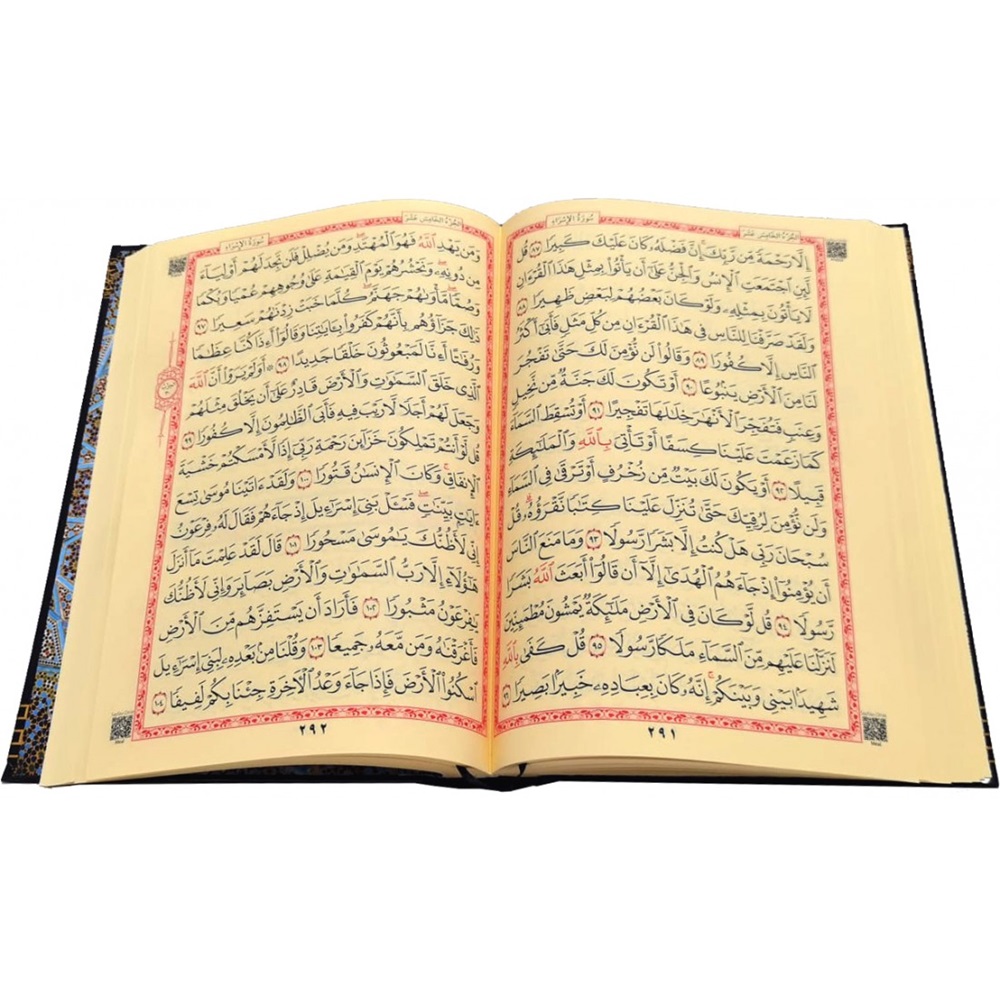 سُورَةُ الإِسْرَاءِ
الجُزْءُ الخَامِسَ عَشَرَ
إِلَّا رَحْمَةً مِّن رَّبِّكَ إِنَّ فَضْلَهُۥ كَانَ عَلَيْكَ كَبِيرًا ٨٧ قُل
لَّئِنِ ٱجْتَمَعَتِ ٱلْإِنسُ وَٱلْجِنُّ عَلَىٰٓ أَن يَأْتُوا۟ بِمِثْلِ هَٰذَا ٱلْقُرْءَانِ
لَا يَأْتُونَ بِمِثْلِهِۦ وَلَوْ كَانَ بَعْضُهُمْ لِبَعْضٍ ظَهِيرًا ٨٨
وَلَقَدْ صَرَّفْنَا لِلنَّاسِ فِى هَٰذَا ٱلْقُرْءَانِ مِن كُلِّ مَثَلٍ فَأَبَىٰٓ أَكْثَرُ
ٱلنَّاسِ إِلَّا كُفُورًا ٨٩ وَقَالُوا۟ لَن نُّؤْمِنَ لَكَ حَتَّىٰ تَفْجُرَ
لَنَا مِنَ ٱلْأَرْضِ يَنۢبُوعًا ٩٠ أَوْ تَكُونَ لَكَ جَنَّةٌ مِّن نَّخِيلٍ
وَعِنَبٍ فَتُفَجِّرَ ٱلْأَنْهَٰرَ خِلَٰلَهَا تَفْجِيرًا ٩١ أَوْ تُسْقِطَ ٱلسَّمَآءَ
كَمَا زَعَمْتَ عَلَيْنَا كِسَفًا أَوْ تَأْتِىَ بِٱللَّهِ وَٱلْمَلَٰٓئِكَةِ
قَبِيلًا ٩٢ أَوْ يَكُونَ لَكَ بَيْتٌ مِّن زُخْرُفٍ أَوْ تَرْقَىٰ فِى ٱلسَّمَآءِ
وَلَن نُّؤْمِنَ لِرُقِيِّكَ حَتَّىٰ تُنَزِّلَ عَلَيْنَا كِتَٰبًا نَّقْرَؤُهُۥ قُلْ
سُبْحَانَ رَبِّى هَلْ كُنتُ إِلَّا بَشَرًا رَّسُولًا ٩٣ وَمَا مَنَعَ ٱلنَّاسَ
أَن يُؤْمِنُوٓا۟ إِذْ جَآءَهُمُ ٱلْهُدَىٰٓ إِلَّآ أَن قَالُوٓا۟ أَبَعَثَ ٱللَّهُ بَشَرًا
رَّسُولًا ٩٤ قُل لَّوْ كَانَ فِى ٱلْأَرْضِ مَلَٰٓئِكَةٌ يَمْشُونَ مُطْمَئِنِّينَ
لَنَزَّلْنَا عَلَيْهِم مِّنَ ٱلسَّمَآءِ مَلَكًا رَّسُولًا ٩٥ قُلْ كَفَىٰ بِٱللَّهِ
شَهِيدًۢا بَيْنِى وَبَيْنَكُمْ إِنَّهُۥ كَانَ بِعِبَادِهِۦ خَبِيرًۢا بَصِيرًا ٩٦
٢٩١
الجُزْءُ الخَامِسَ عَشَرَ
سُورَةُ الإِسْرَاءِ
وَمَن يَهْدِ ٱللَّهُ فَهُوَ ٱلْمُهْتَدِ وَمَن يُضْلِلْ فَلَن تَجِدَ لَهُمْ أَوْلِيَآءَ
مِن دُونِهِۦ وَنَحْشُرُهُمْ يَوْمَ ٱلْقِيَٰمَةِ عَلَىٰ وُجُوهِهِمْ عُمْيًا وَبُكْمًا
وَصُمًّا مَّأْوَىٰهُمْ جَهَنَّمُ كُلَّمَا خَبَتْ زِدْنَٰهُمْ سَعِيرًا ٩٧
ذَٰلِكَ جَزَآؤُهُم بِأَنَّهُمْ كَفَرُوا۟ بِـَٔايَٰتِنَا وَقَالُوٓا۟ أَءِذَا كُنَّا عِظَٰمًا
وَرُفَٰتًا أَءِنَّا لَمَبْعُوثُونَ خَلْقًا جَدِيدًا ٩٨ ۞ أَوَلَمْ يَرَوْا۟ أَنَّ ٱللَّهَ
ٱلَّذِى خَلَقَ ٱلسَّمَٰوَٰتِ وَٱلْأَرْضَ قَادِرٌ عَلَىٰٓ أَن يَخْلُقَ مِثْلَهُمْ
وَجَعَلَ لَهُمْ أَجَلًا لَّا رَيْبَ فِيهِ فَأَبَى ٱلظَّٰلِمُونَ إِلَّا كُفُورًا ٩٩
قُل لَّوْ أَنتُمْ تَمْلِكُونَ خَزَآئِنَ رَحْمَةِ رَبِّىٓ إِذًا لَّأَمْسَكْتُمْ خَشْيَةَ
ٱلْإِنفَاقِ وَكَانَ ٱلْإِنسَٰنُ قَتُورًا ١٠٠ وَلَقَدْ ءَاتَيْنَا مُوسَىٰ تِسْعَ
ءَايَٰتٍۭ بَيِّنَٰتٍ فَسْـَٔلْ بَنِىٓ إِسْرَٰٓءِيلَ إِذْ جَآءَهُمْ فَقَالَ لَهُۥ فِرْعَوْنُ
إِنِّى لَأَظُنُّكَ يَٰمُوسَىٰ مَسْحُورًا ١٠١ قَالَ لَقَدْ عَلِمْتَ مَآ أَنزَلَ
هَٰٓؤُلَآءِ إِلَّا رَبُّ ٱلسَّمَٰوَٰتِ وَٱلْأَرْضِ بَصَآئِرَ وَإِنِّى لَأَظُنُّكَ
يَٰفِرْعَوْنُ مَثْبُورًا ١٠٢ فَأَرَادَ أَن يَسْتَفِزَّهُم مِّنَ ٱلْأَرْضِ
فَأَغْرَقْنَٰهُ وَمَن مَّعَهُۥ جَمِيعًا ١٠٣ وَقُلْنَا مِنۢ بَعْدِهِۦ لِبَنِىٓ إِسْرَٰٓءِيلَ
ٱسْكُنُوا۟ ٱلْأَرْضَ فَإِذَا جَآءَ وَعْدُ ٱلْءَاخِرَةِ جِئْنَا بِكُمْ لَفِيفًا ١٠٤
٢٩٢